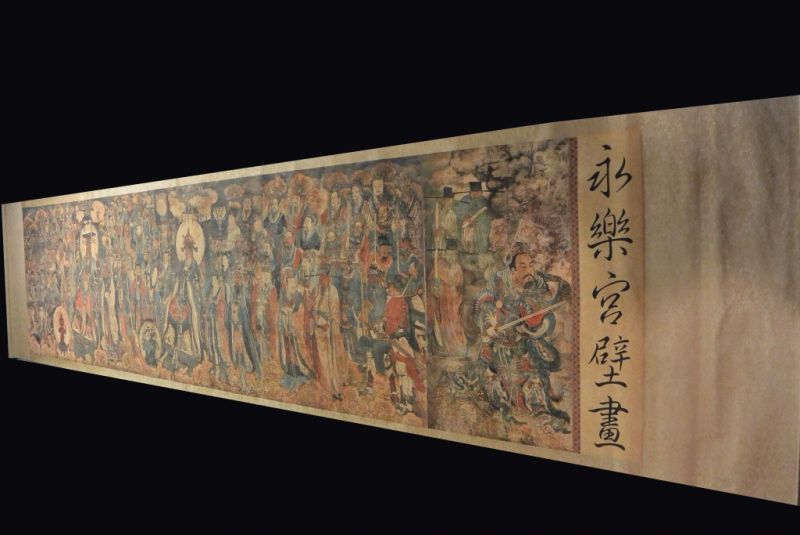 永樂宮壁畫